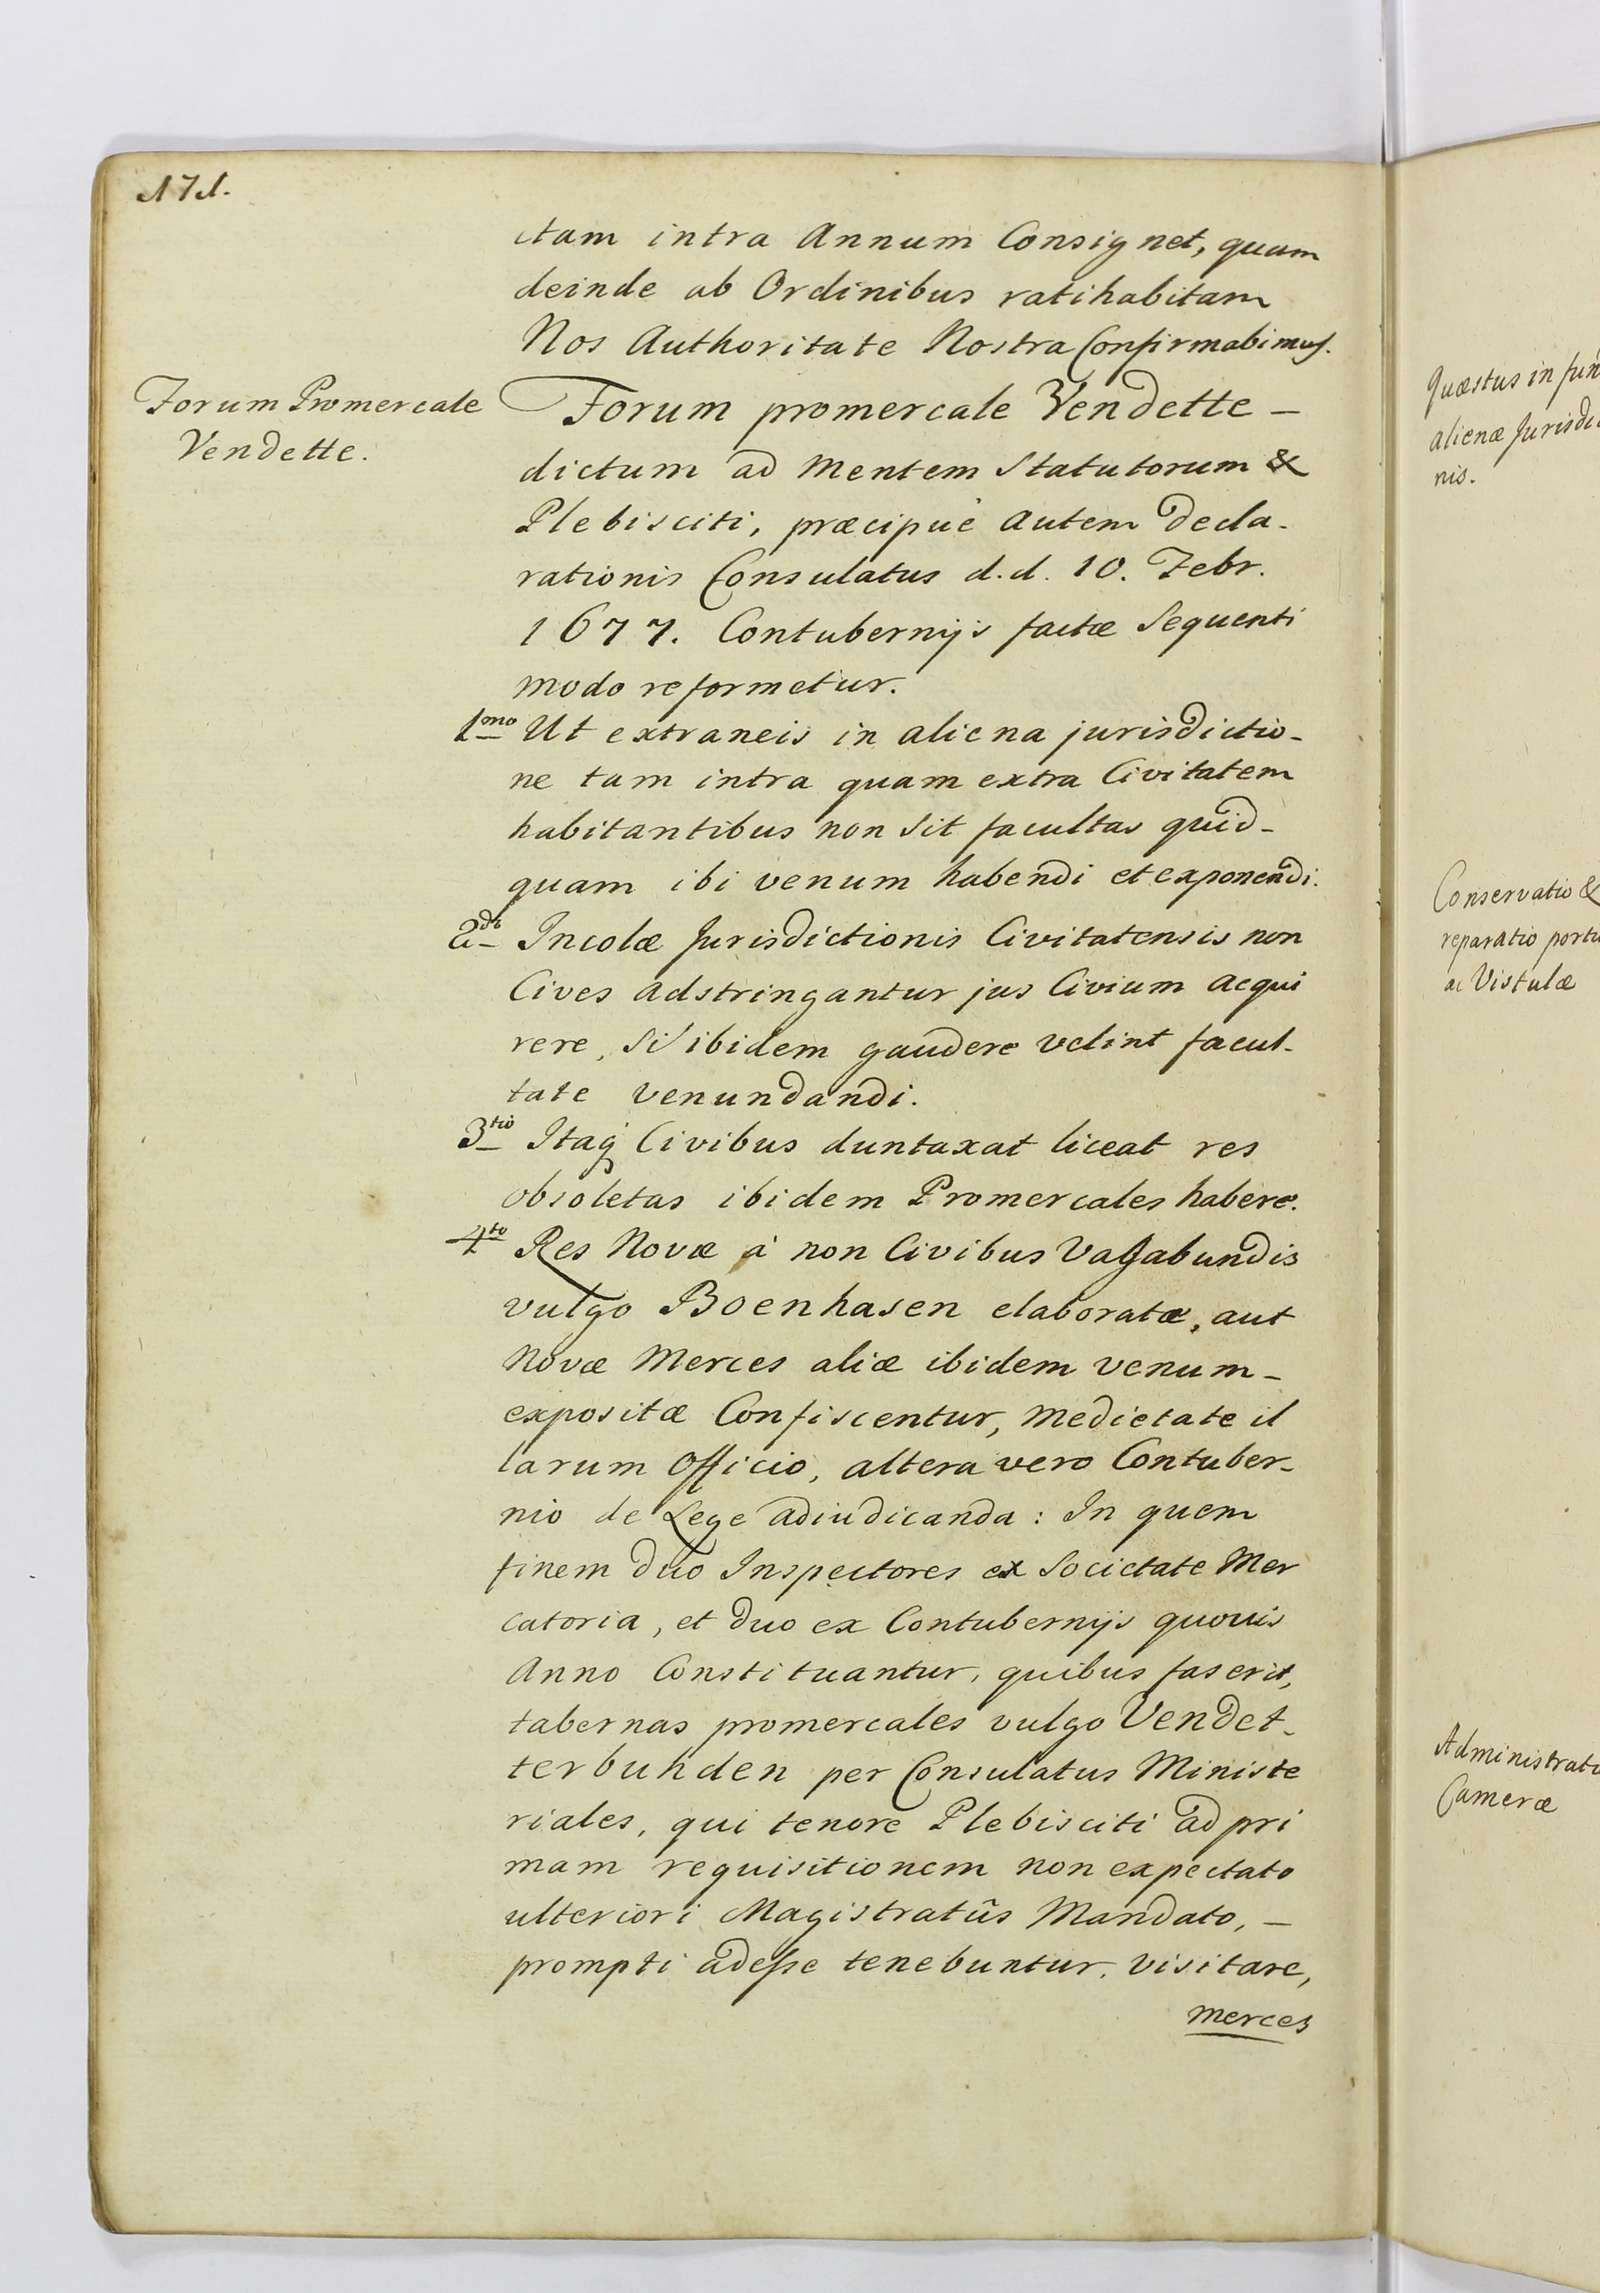 171.
ctam intra Annum Consignet, quam
deinde ab Ordinibus ratihabitam
Nos Authoritate Nostra Confirmabimus.
Forum Promercale
Vendette.
Forum promercale Vendette –
dictum ad mentem Statutorum &
Plebisciti, præcipuè autem Decla-
rationis Consulatus d.d. 10. Febr.
1677. Contubernijs factæ Sequenti
modo reformetur.
1mo Ut extraneis in aliena jurisdictio-
ne tam intra quam extra Civitatem
habitantibus non Sit facultas quid-
quam ibi venum habendi et exponendi.
2do Incolæ Jurisdictionis Civitatensis non
Cives adstringantur jus Civium acqui
rere, Si ibidem gaudere velint facul-
tate venundandi.
3tio Itaq Civibus duntaxat liceat res
obsoletas ibidem Promercales habere.
4to Res Novæ à non Civibus Vagabundis
vulgo Boenhasen elaboratæ, aut
Novæ Merces aliæ ibidem venum-
expositæ Confiscentur, medietate il
larum Officio, altera vero Contuber-
nio de Lege adiudicanda: In quem
finem duo Inspectores ex Societate Mer
catoria, et duo ex Contubernijs quovis
Anno Constituantur, quibus fas erit,
tabernas promercales vulgo Vendet-
terbuhden per Consulatus Ministe
riales, qui tenore Plebisciti ad pri
mam requisitionem non expectato
ulteriori Magistratûs Mandato, –
prompti adesse tenebuntur, visitare,
merces
Quæstus in
alienæ
nis.
Conservatio &
reparatio
ac Vistulæ
Cameræ